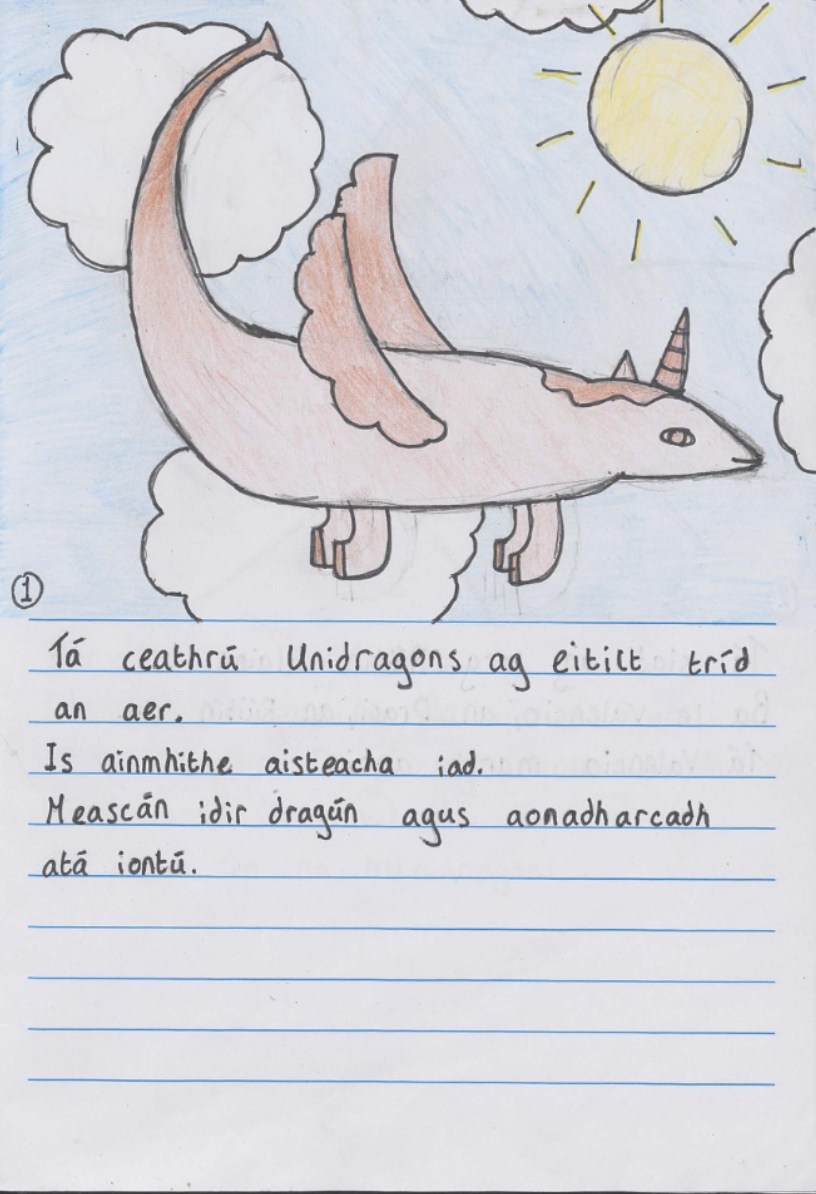 1
Tá ceathrú Unidragons ag eitilt tríd
an aer.
Is ainmhithe aisteacha iad.
Meascán idir dragún agus aonadharcadh
atá iontú.